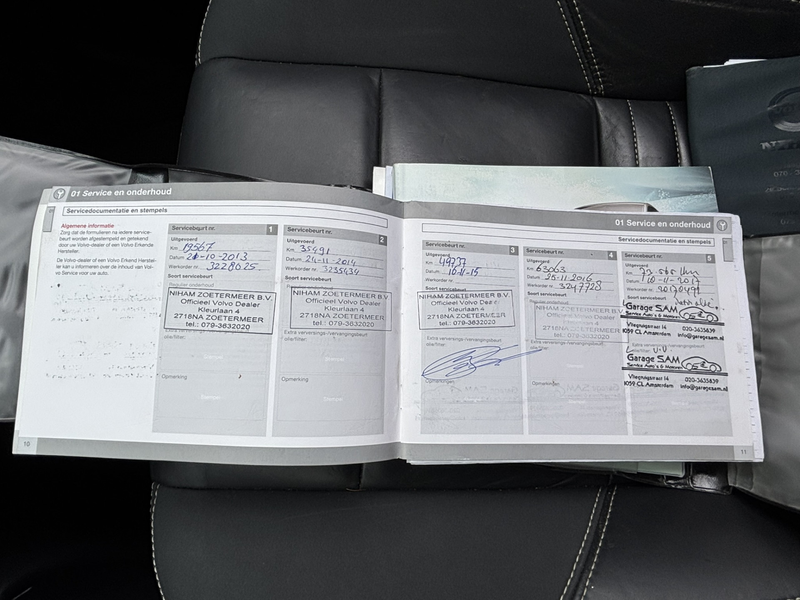 01 Service en onderhoud
Servicedocumentatie en stempels
Algemene informatie
Zorg dat de formulieren na iedere service-
beurt worden afgestempeld en getekend
door uw Volvo-dealer of een Volvo Erkende
Hersteller.
De Volvo-dealer of een Volvo Erkend Herstel-
ler kan u informeren over de inhoud van Vol-
vo Service voor uw auto.
Servicebeurt nr. 1
Uitgevoerd
Km 19567
Datum 21-10-2013
Werkorder nr. 3228625
Soort servicebeurt
Regulier onderhoud
NIHAM ZOETERMEER B.V.
Officieel Volvo Dealer
Kleurlaan 4
2718NA ZOETERMEER
tel.: 079-3632020
Extra verversings-/vervangingsbeurt
olie/filter:
Opmerking
Stempel
Servicebeurt nr. 2
Uitgevoerd
Km 35491
Datum 24-11-2014
Werkorder nr. 3235434
Soort servicebeurt
NIHAM ZOETERMEER B.V.
Officieel Volvo Dealer
Kleurlaan 4
2718NA ZOETERMEER
tel.: 079-3632020
Extra verversings-/vervangingsbeurt
olie/filter:
Opmerking
Stempel
10
01 Service en onderhoud
Servicedocumentatie en stempels
Servicebeurt nr. 3
Uitgevoerd
Km 49737
Datum 10-11-15
Werkorder nr.
Soort servicebeurt
NIHAM ZOETERMEER B.V.
Officieel Volvo Dealer
Kleurlaan 4
2718NA ZOETERMEER
tel.: 079-3632020
Extra verversings-/vervangingsbeurt
olie/filter:
Opmerkingen
Servicebeurt nr. 4
Uitgevoerd
Km 63063
Datum 25-11-2016
Werkorder nr. 3247728
Soort servicebeurt
NIHAM ZOETERMEER B.V.
Officieel Volvo Dealer
Kleurlaan 4
2718NA ZOETERMEER
tel.: 079-3632020
Extra verversings-/vervangingsbeurt
olie/filter:
Opmerking
Servicebeurt nr. 5
Uitgevoerd
Km
Datum 10-11-2017
Werkorder nr.
Soort servicebeurt
Garage SAM
Service Auto's & Motoren
Vliegnugstraat 14 020-3635839
1059 CL Amsterdam info@garagesam.nl
Garage SAM
Service Auto's & Motoren
Vliegnugstraat 14 020-3635839
1059 CL Amsterdam info@garagesam.nl
11